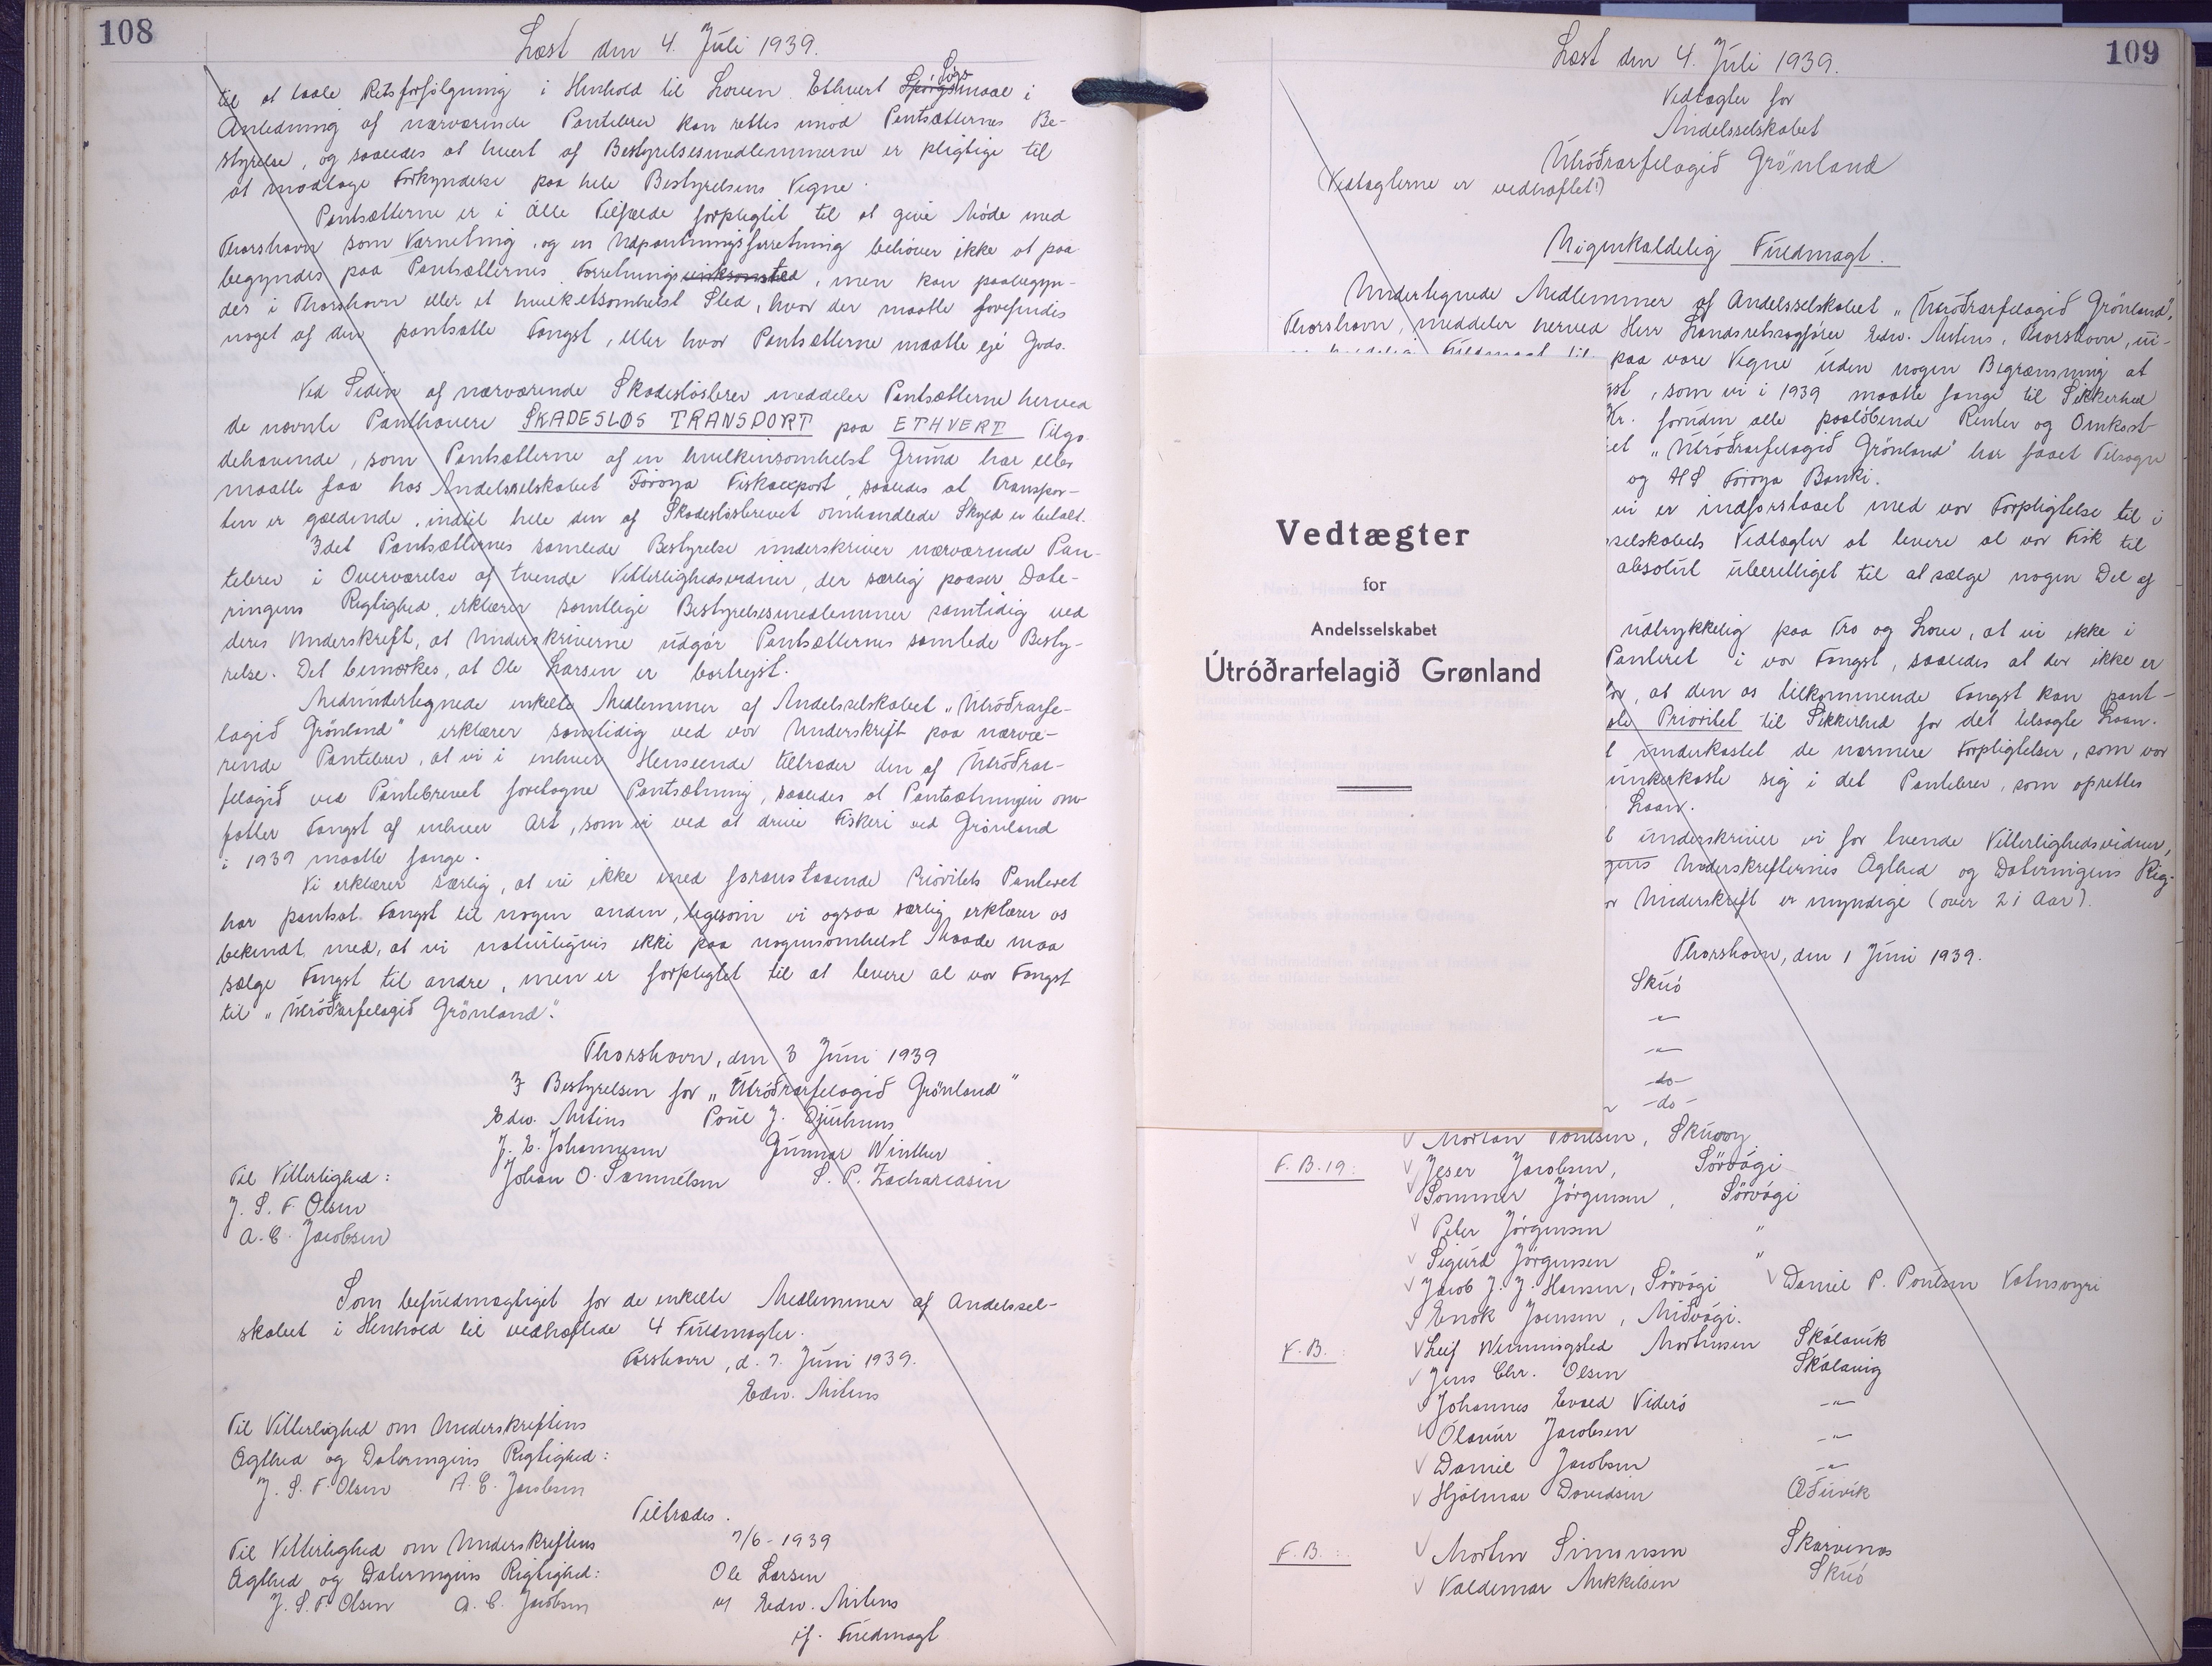 108
Læst den 4. Juli 1939.
til at taale Retsforfölgning i Henhold til Loven. Ethvert Spörgsmaal Sörs i
Anledning af nærværende Pantebrev kan rettes imod Pantsætternes Be-
styrelse, og saaledes at hvert af Bestyrelsesmedlemmerne er pligtige til
at modtage Forkyndelse paa hele Bestyrelsens Vegne.
Pantsætterne er i alle Tilfælde forpligtet til at give Möde med
Thorshavn som Værneting, og en Udpantningsforretning behöver ikke at paa
begyndes paa Pantsætternes Forretningsvirksomhed, men kan paabegyn-
des i Thorshavn eller et hvilketsomhelst Sted, hvor der maatte forefindes
noget af den pantsatte Fangst, eller hvor Pantsætterne maatte eje Gods.
Ved Siden af nærværende Skadeslösbrev meddeler Pantsætterne herved
de nævnte Panthavere SKADESLØS TRANSPORT paa ETHVERT Tilgo
dehavende, som Pantsætterne af en hvilkensomhelst Grund har eller
maatte faa hos Andelsselskabet Föroya Fiskaexport, saaledes at Transpor-
ten er gældende, indtil hele den af Skadeslösbrevet omhandlede Skyld er betalt.
Idet Pantsætternes samlede Bestyrelse underskriver nærværende Pan-
tebrev i Overværelse af tvende Vitterlighedsvidner, der særlig paaser Date-
ringens Rigtighed, erklærer samtlige Bestyrelsesmedlemmer samtidig ved
deres Underskrift, at Underskriverne udgör Pantsætternes samlede Besty-
relse. Det bemærkes, at Ole Larsen er bortrejst.
Medundertegnede enkelte Medlemmer af Andelsselskabet „Útróðrarfe-
lagið Grönland" erklærer samtidig ved vor Underskrift paa nærvæ-
rende Pantebrev, at vi i enhver Henseende tiltræder den af Útróðrar-
felagið ved Pantebrevet foretagne Pantsætning, saaledes at Pantsætningen om-
fatter Fangst af enhver Art, som vi ved at drive Fiskeri ved Grönland
i 1939 maatte fange.
Vi erklærer særlig, at vi ikke med foranstaaende Prioritets Panteret
har pantsat Fangst til nogen anden, ligesom vi ogsaa særlig erklærer os
bekendt med, at vi naturligvis ikke paa nogensomhelst Maade maa
sælge Fangst til andre, men er forpligtet til at levere al vor Fangst
til „Útróðrarfelagið Grönland".
Thorshavn, den 3 Juni 1939
I Bestyrelsen for „Útróðrarfelagið Grönland"
Edw. Mitens Poul J. Djurhuus
J. E. Johannesen Gunnar Winther
Til Vitterlighed: Johan O. Samuelsen S. P. Zachariasen
J. S. F. Olsen
A. C. Jacobsen
Som befuldmægtiget for de enkelte Medlemmer af Andelssel-
skabet i Henhold til vedhæftede 4 Fuldmagter.
Torshavn, d. 7. Juni 1939.
Edw. Mitens
Til Vitterlighed om Underskriftens
Ægthed og Dateringens Rigtighed:
J. S. F. Olsen A. C. Jacobsen
Tiltrædes.
Til Vitterlighed om Underskriftens 7/6 - 1939
Ægthed og Dateringens Rigtighed: Ole Larsen
J. S. F. Olsen A. C. Jacobsen v/ Edw. Mitens
if. Fuldmagt
109
Læst den 4. Juli 1939.
Vedtægter for
Andelsselskabet
Útróðrarfelagið Grönland
(Vedtægterne er vedhæftet!)
Uigenkaldelig Fuldmagt.
Undertegnede Medlemmer af Andelsselskabet „Útróðrarfelagið Grönland",
Thorshavn, meddeler herved Herr Landsretssagförer Edw. Mitens, Thorshavn, ui-
Fuldmagt til paa vore Vegne uden nogen Begrænsning at
gst, som vi i 1939 maatte fange til Sikkerhed
Kr. foruden alle paalöbende Renter og Omkost-
et „Útróðrarfelagið Grönland" har faaet Tilsagn
og A/S Föroya Banki.
vi er indforstaaet med vor Forpligtelse til i
selskabets Vedtægter at levere al vor Fisk til
absolut uberettiget til at sælge nogen Del af
udtrykkelig paa Tro og Love, at vi ikke i
Panteret i vor Fangst, saaledes at der ikke er
for, at den os tilkommende Fangst kan pant-
ste Prioritet til Sikkerhed for det tilsagte Laan.
t underkastet de nærmere Forpligtelser, som vor
underkaste sig i det Pantebrev, som oprettes
Laan.
t underskriver vi for tvende Vitterlighedsvidner,
gens Underskrifternes Ægthed og Dateringens Rig-
or Underskrift er myndige (over 21 Aar).
Thorshavn, den 1 Juni 1939.
Skúö
-"-
-"-
-do-
-do-
Vedtægter
for
Andelsselskabet
Útróðrarfelagið Grønland
Morten Poulsen, Skúvoy
F.B. 19: Jeser Jacobsen, Sörvági
Sommer Jörgensen, Sörvági
Peter Jörgensen "
Sigurd Jörgensen "
Jacob J. J. Hansen, Sörvági Daniel P. Poulsen Vatnsoyri
Enok Joensen, Miðvági.
F.B. : Leif Wenningsted Mortensen Skálavík
Jens Chr. Olsen Skálavig
Johannes Evald Viderö -"-
Ólavur Jacobsen -"-
Daniel Jacobsen -"-
Hjálmar Davidsen Øruvík
F.B. : Morten Simonsen Skarvenes
Valdemar Mikkelsen Skúö